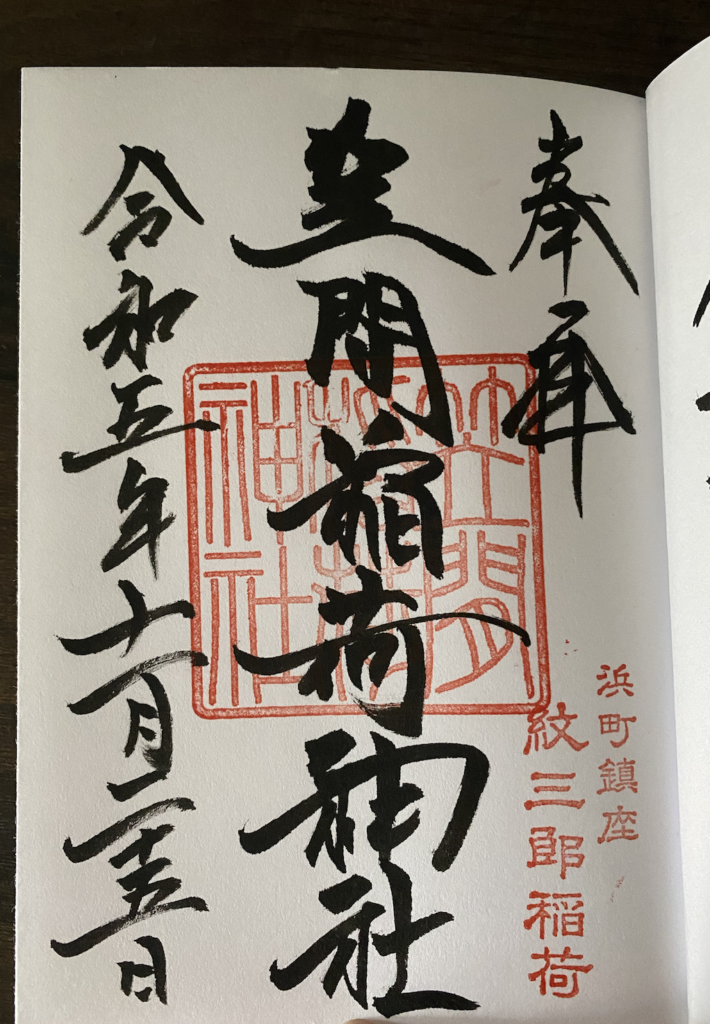 奉拝
浜町鎮座
紋三郎稲荷
笠間稲荷神社
笠間
稲荷
神社
令和五年十一月二十五日